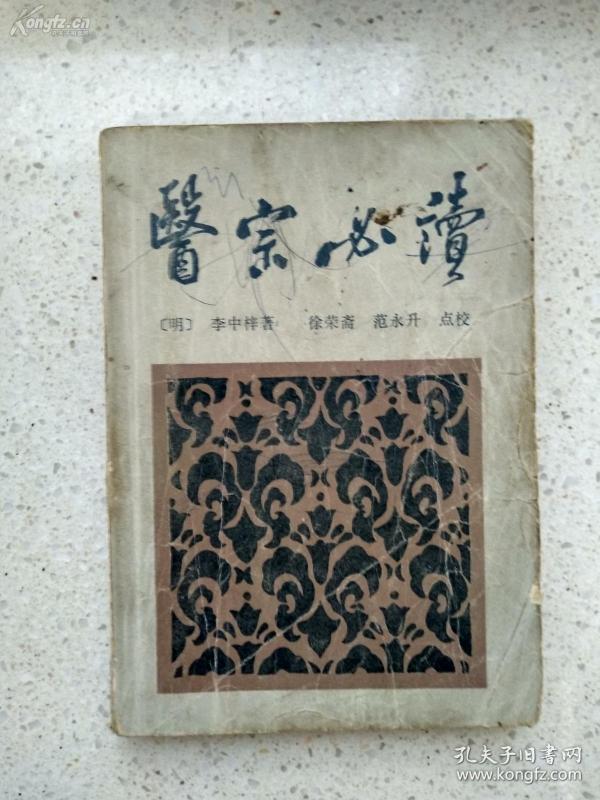 Kongfz.cn
醫宗必讀
〔明〕 李中梓著 徐荣斋 范永升 点校
孔夫子旧书网
www.kongfz.com